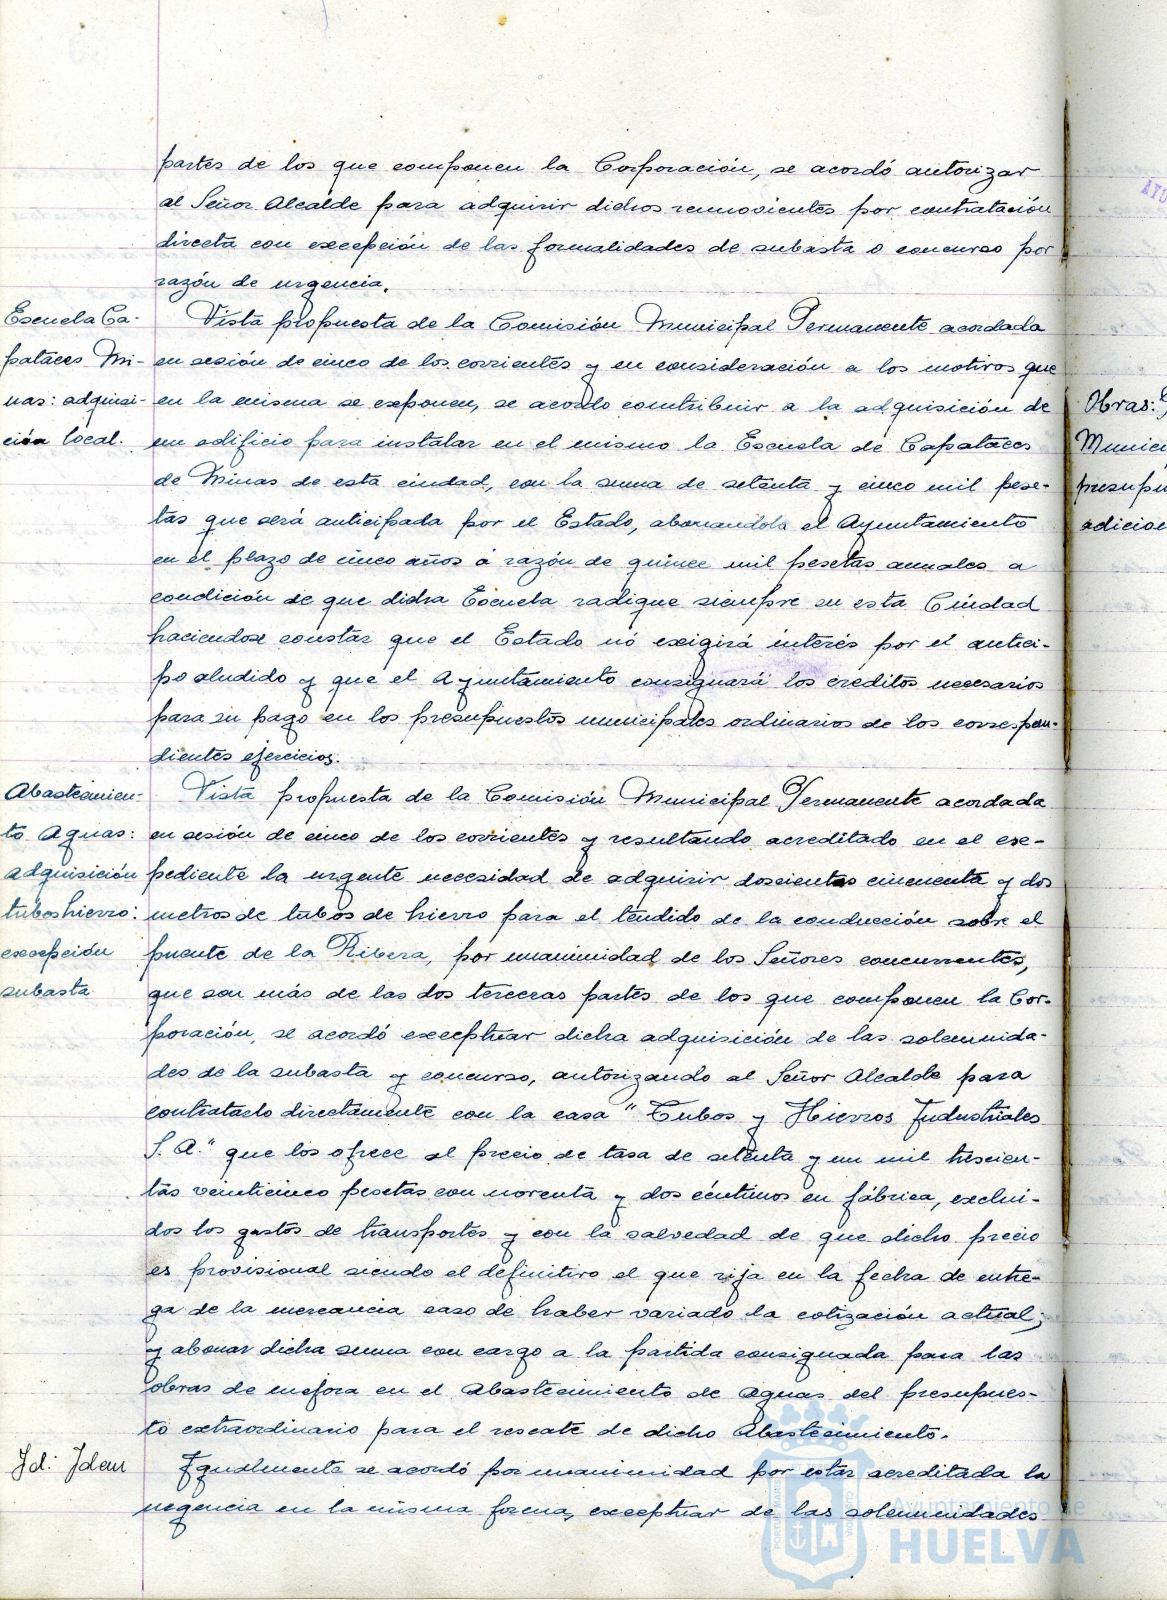 partes de los que componen la Corporación, se acordó autorizar
al Señor Alcalde para adquirir dichos semovientes por contratación
directa con excepción de las formalidades de subasta o concurso por
razón de urgencia.
Escuela Ca-
pataces Mi-
nas: adquisi-
ción local.
Vista propuesta de la Comisión Municipal Permanente acordada
en sesión de cinco de los corrientes y en consideración a los motivos que
en la misma se exponen, se acordo contribuir a la adquisición de
un edificio para instalar en el mismo la Escuela de Capataces
de Minas de esta ciudad, con la suma de setenta y cinco mil pese-
tas que será anticipada por el Estado, abonandola el Ayuntamiento
en el plazo de cinco años á razón de quince mil pesetas anuales a
condición de que dicha Escuela radique siempre en esta Ciudad
haciendose constar que el Estado nó exigirá interés por el antici-
po aludido y que el Ayuntamiento consignará los creditos necesarios
para su pago en los presupuestos municipales ordinarios de los correspon-
dientes ejercicios.
Abastecimien-
to Aguas:
adquisición
tubos hierro:
excepción
subasta
Vista propuesta de la Comisión Municipal Permanente acordada
en sesión de cinco de los corrientes y resultando acreditado en el ex-
pediente la urgente necesidad de adquirir doscientos cincuenta y dos
metros de tubos de hierro para el tendido de la conducción sobre el
puente de la Ribera, por unanimidad de los Señores concurrentes,
que son más de las dos terceras partes de los que componen la Cor-
poración, se acordó exceptuar dicha adquisición de las solemnida-
des de la subasta y concurso, autorizando al Señor Alcalde para
contratarlo directamente con la casa "Tubos y Hierros Industriales
S. A." que los ofrece al precio de tasa de setenta y un mil trescien-
tas veinticinco pesetas con noventa y dos céntimos en fábrica, exclui-
dos los gastos de transportes y con la salvedad de que dicho precio
es provisional siendo el definitivo el que rija en la fecha de entre-
ga de la mercancia caso de haber variado la cotización actual;
y abonar dicha suma con cargo a la partida consignada para las
obras de mejora en el Abastecimiento de Aguas del presupues-
to extraordinario para el rescate de dicho Abastecimiento.
Id: Idem
Igualmente se acordó por unanimidad por estar acreditada la
urgencia en la misma forma, exceptuar de las solemnidades
Obras:
Munici
presupu
adicion
AYU
Ayuntamiento de
HUELVA